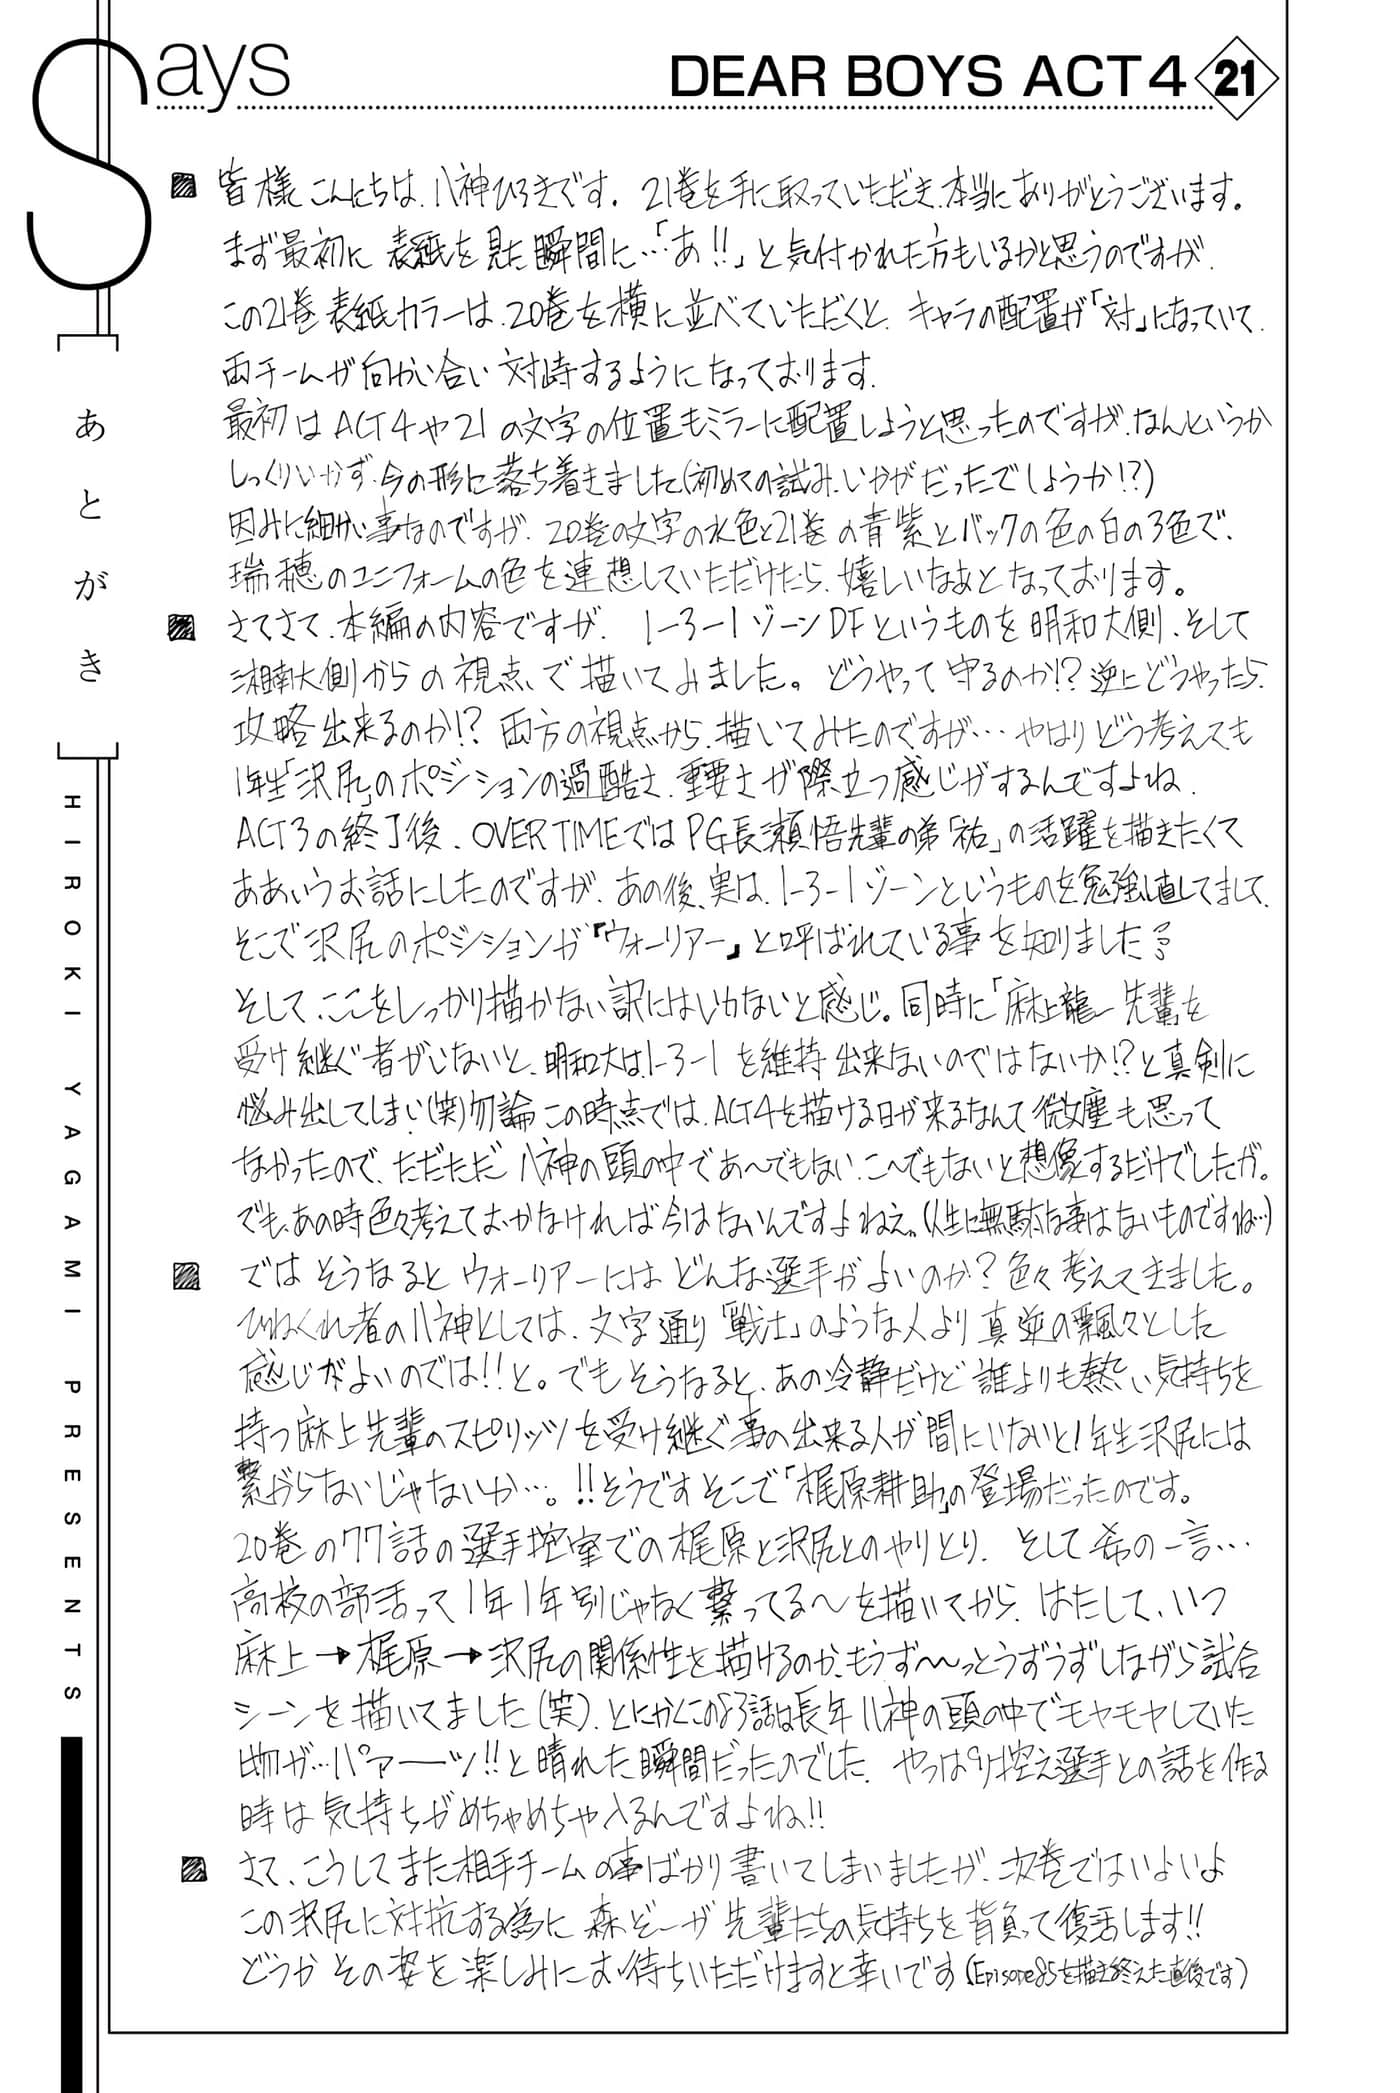 Says
DEAR BOYS ACT4 21
[あとがき]
HIROKI YAGAMI PRESENTS
皆様こんにちは、八神ひろきです。21巻を手に取っていただき、本当にありがとうございます。
まず最初に表紙を見た瞬間に…「あ!!」と気付かれた方もいるかと思うのですが、
この21巻表紙カラーは、20巻を横に並べていただくと、キャラの配置が「対」になっていて、
両チームが向かい合い対峙するようになっております。
最初はACT4や21の文字の位置もミラーに配置しようと思ったのですが、なんというか
しっくりいかず、今の形に落ち着きました(初めての試み、いかがだったでしょうか!?)
因みに細かい事なのですが、20巻の文字の水色と21巻の青紫とバックの色の白の3色で、
瑞穂のユニフォームの色を連想していただけたら、嬉しいなぁとなっております。
さてさて、本編の内容ですが、1-3-1ゾーンDFというものを明和大側、そして
湘南大側からの視点で描いてみました。どうやって守るのか!?逆にどうやったら、
攻略出来るのか!?両方の視点から、描いてみたのですが…やはりどう考えても
1年生「沢尻」のポジションの過酷さ、重要さが際立つ感じがするんですよね、
ACT3の終了後、OVERTIMEではPG長瀬悟先輩の弟「祐」の活躍を描きたくて
ああいうお話にしたのですが、あの後、実は、1-3-1ゾーンというものを勉強し直してまして、
そこで沢尻のポジションが『ウォーリアー』と呼ばれている事を知りました
そして、ここをしっかり描かない訳にはいかないと感じ。同時に「麻上龍一先輩」を
受け継ぐ者がいないと、明和大は、1-3-1を維持出来ないのではないか!?と真剣に
悩み出してしまい(笑)勿論この時点では、ACT4を描ける日が来るなんて微塵も思って
なかったので、ただただ八神の頭の中であ〜でもない、こ〜でもないと想像するだけでしたが。
でも、あの時色々考えておかなければ今はないんですよねえ。(人生に無駄な事はないものですね…)
ではそうなるとウォーリアーにはどんな選手がよいのか?色々考えてきました。
ひねくれ者の八神としては、文字通り「戦士」のような人より真逆の飄々とした
感じがよいのでは!!と。でもそうなると、あの冷静だけど誰よりも熱い気持ちを
持つ麻上先輩のスピリッツを受け継ぐ事の出来る人が間にいないと1年生沢尻には
繋がらないじゃないか…。!!そうですそこで「梶原耕助」の登場だったのです。
20巻の77話の選手控室での梶原と沢尻とのやりとり、そして希の一言…
高校の部活って1年1年別じゃなく繋ってる〜を描いてから、はたして、いつ
麻上→梶原→沢尻の関係性を描けるのか、もうず〜〜っとうずうずしながら試合
シーンを描いてました(笑)、とにかくこの83話は長年八神の頭の中でモヤモヤしていた
物が…パァーーッ!!と晴れた瞬間だったのでした、やっぱり控え選手との話を作る
時は気持ちがめちゃめちゃ入るんですよね!!
さて、こうしてまた相手チームの事ばかり書いてしまいましたが、次巻ではいよいよ
この沢尻に対抗する為に森ぞーが先輩たちの気持ちを背負って復活します!!
どうかその姿を楽しみにお待ちいただけますと幸いです(Episode85を描き終えた直後です)